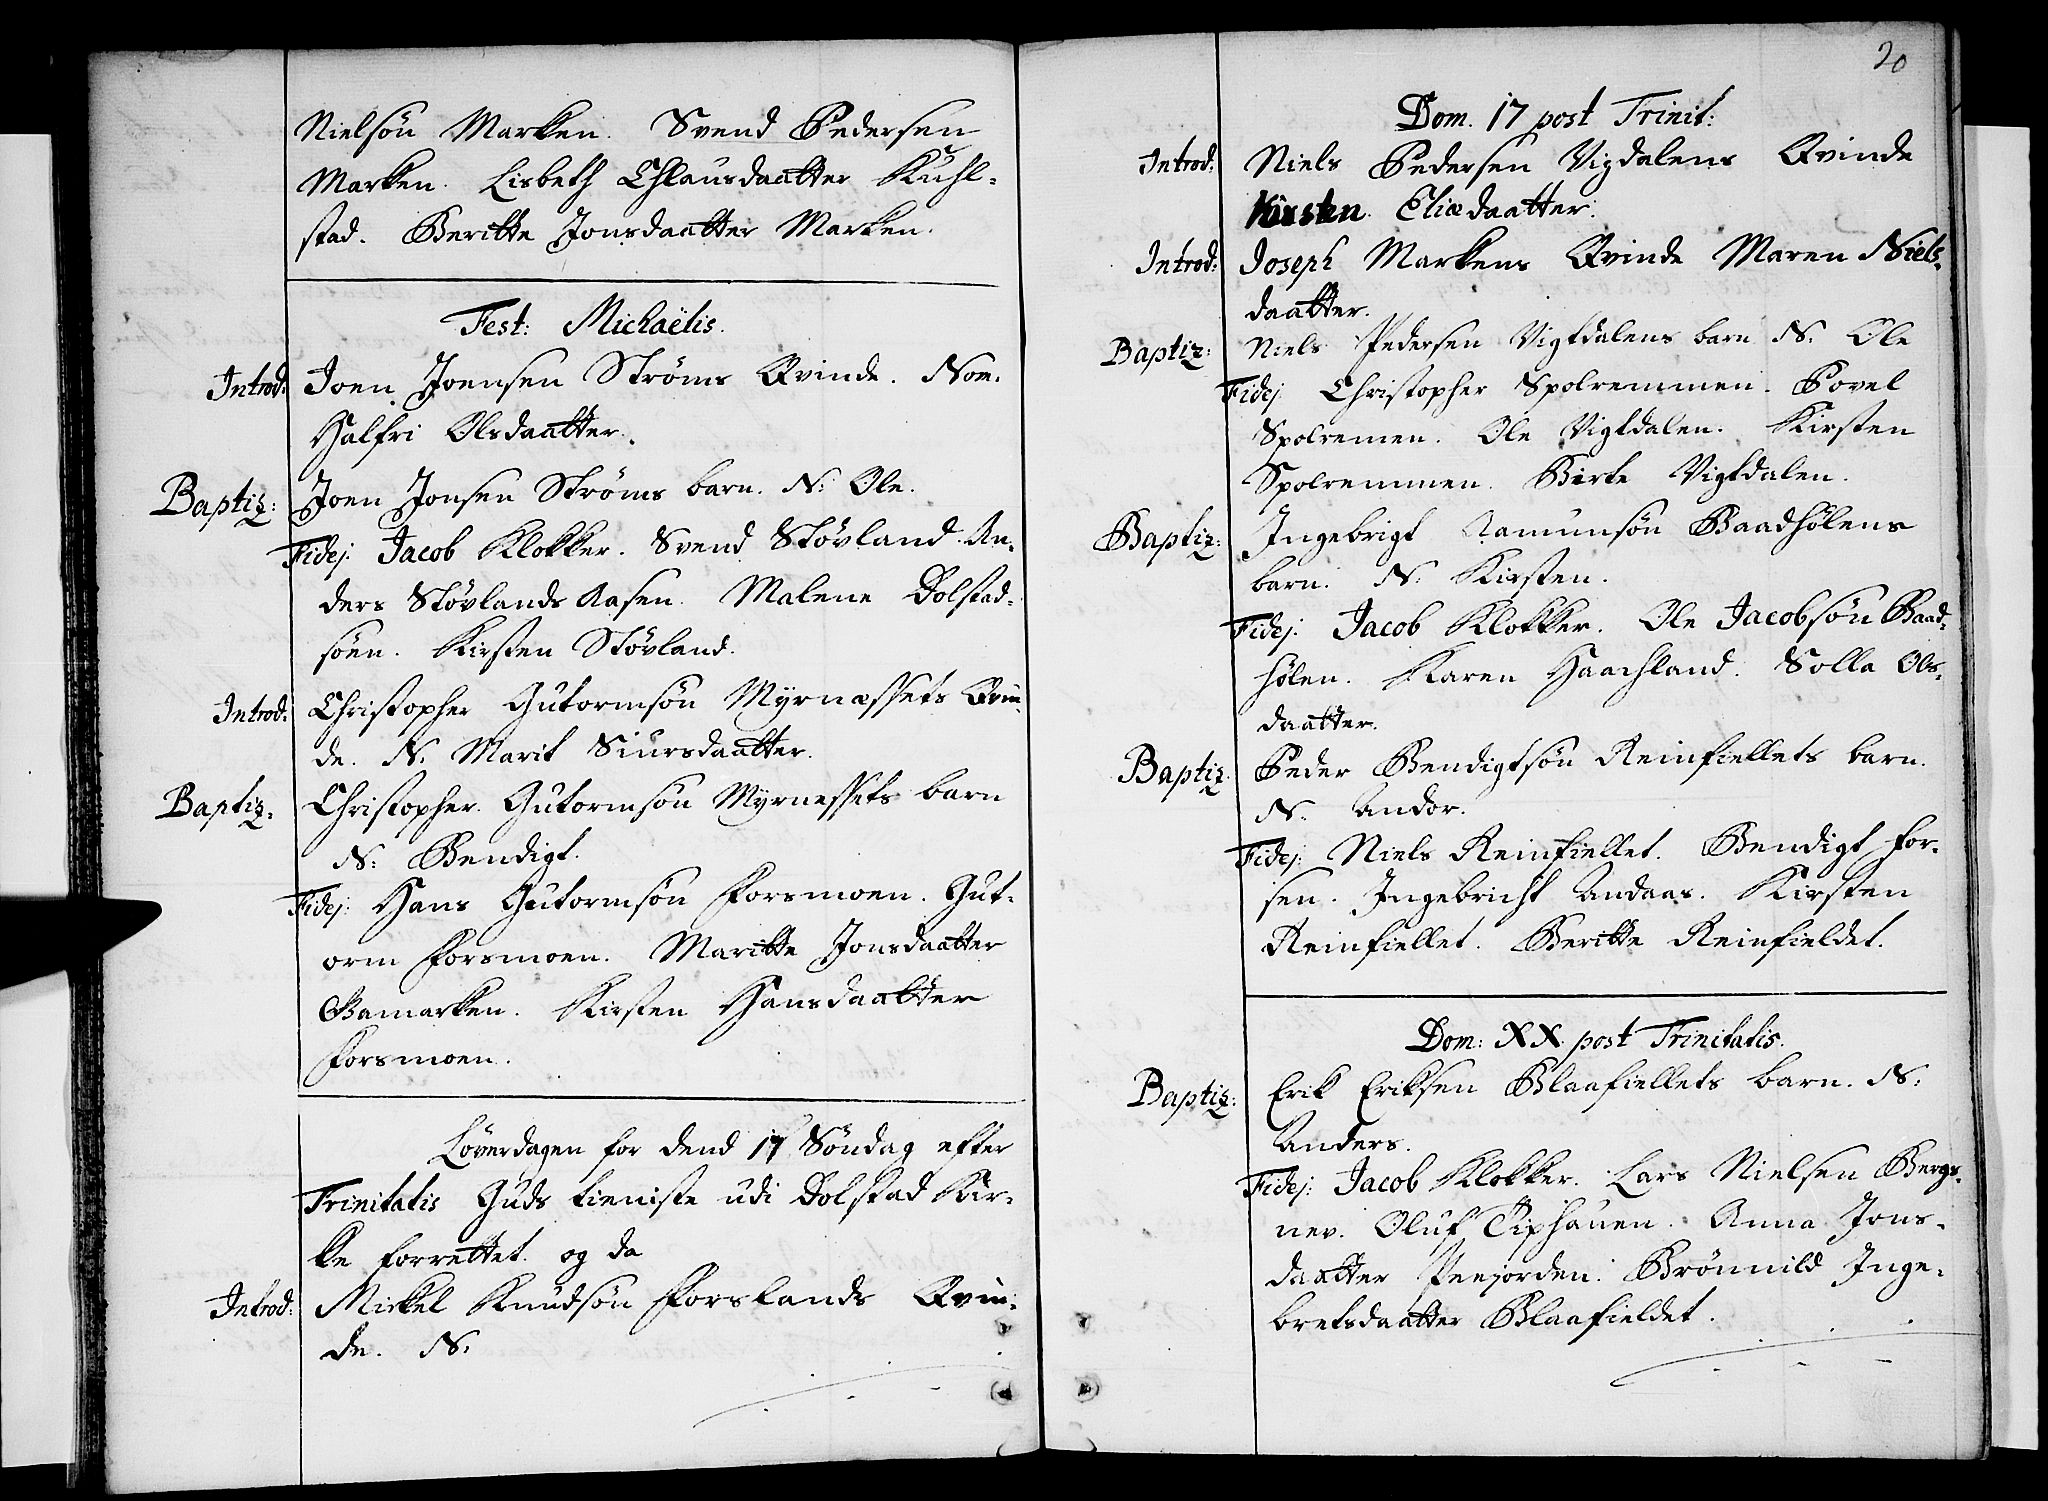 Nielsøn Marken. Svend Pedersen
Marken. Lisbeth Chlausdaatter Kuhl-
stad. Beritte Jonsdaatter Marken.
Fest: Michaëlis.
Introd: Joen Joensen Strøms Qvinde. Nom.
Halfri Olsdaatter.
Baptiz: Joen Jonsen Strøms barn. N: Ole.
Fidej: Jacob Klokker. Svend Støvland. An-
ders Støvlands Aasen. Malene Dolstad-
søen. Kirsten Støvland.
Introd: Christopher Gutormsøn Myrnæssets Qvin-
de. N. Marit Siursdaatter.
Baptiz: Christopher Gutormsøn Myrnessets barn
N: Bendigt.
Fidej: Hans Gutormsøn Forsmoen. Gut-
orm Forsmoen. Maritte Jonsdaatter
Bamarken. Kirsten Hansdaatter
Forsmoen.
Løverdagen for dend 17 Søndag efter
Trinitatis Guds tieniste udi Dolstad Kir-
ke forrettet. og da
Introd: Mickel Knudsøn Forslands Qvin-
de. N.
20
Dom. 17 post Trinit:
Introd: Niels Pedersen Vigdalens Qvinde
Kirsten Eliædaatter.
Introd: Joseph Markens Qvinde Maren Niels-
daatter.
Baptiz: Niels Pedersen Vigtdalens barn N. Ole
Fidej Christopher Spolremmen. Povel
Spolremen. Ole Vigtdalen. Kirsten
Spolremmen. Birte Vigtdalen.
Baptiz: Ingebrigt Aamunsøn Baadhølens
barn. N. Kirsten.
Fidej: Jacob Klokker. Ole Jacobsøn Baad-
hølen. Karen Haachland. Solla Ols-
daatter.
Baptiz: Peder Bendigtsøn Reinfiellets barn.
N. Andor.
Fidej: Niels Reinfiellet. Bendigt For-
sen. Ingebricht Andaas. Kirsten
Reinfiellet. Beritte Reinfieldet.
Dom: XX. post Trinitatis.
Baptiz: Erik Eriksen Blaafiellets barn. N:
Anders.
Fidej: Jacob Klokker. Lars Nielsen Bergs-
nev. Oluf Piphauen. Anna Jons-
daatter Prejorden. Brønnild Inge-
bretsdaatter Blaafieldet.